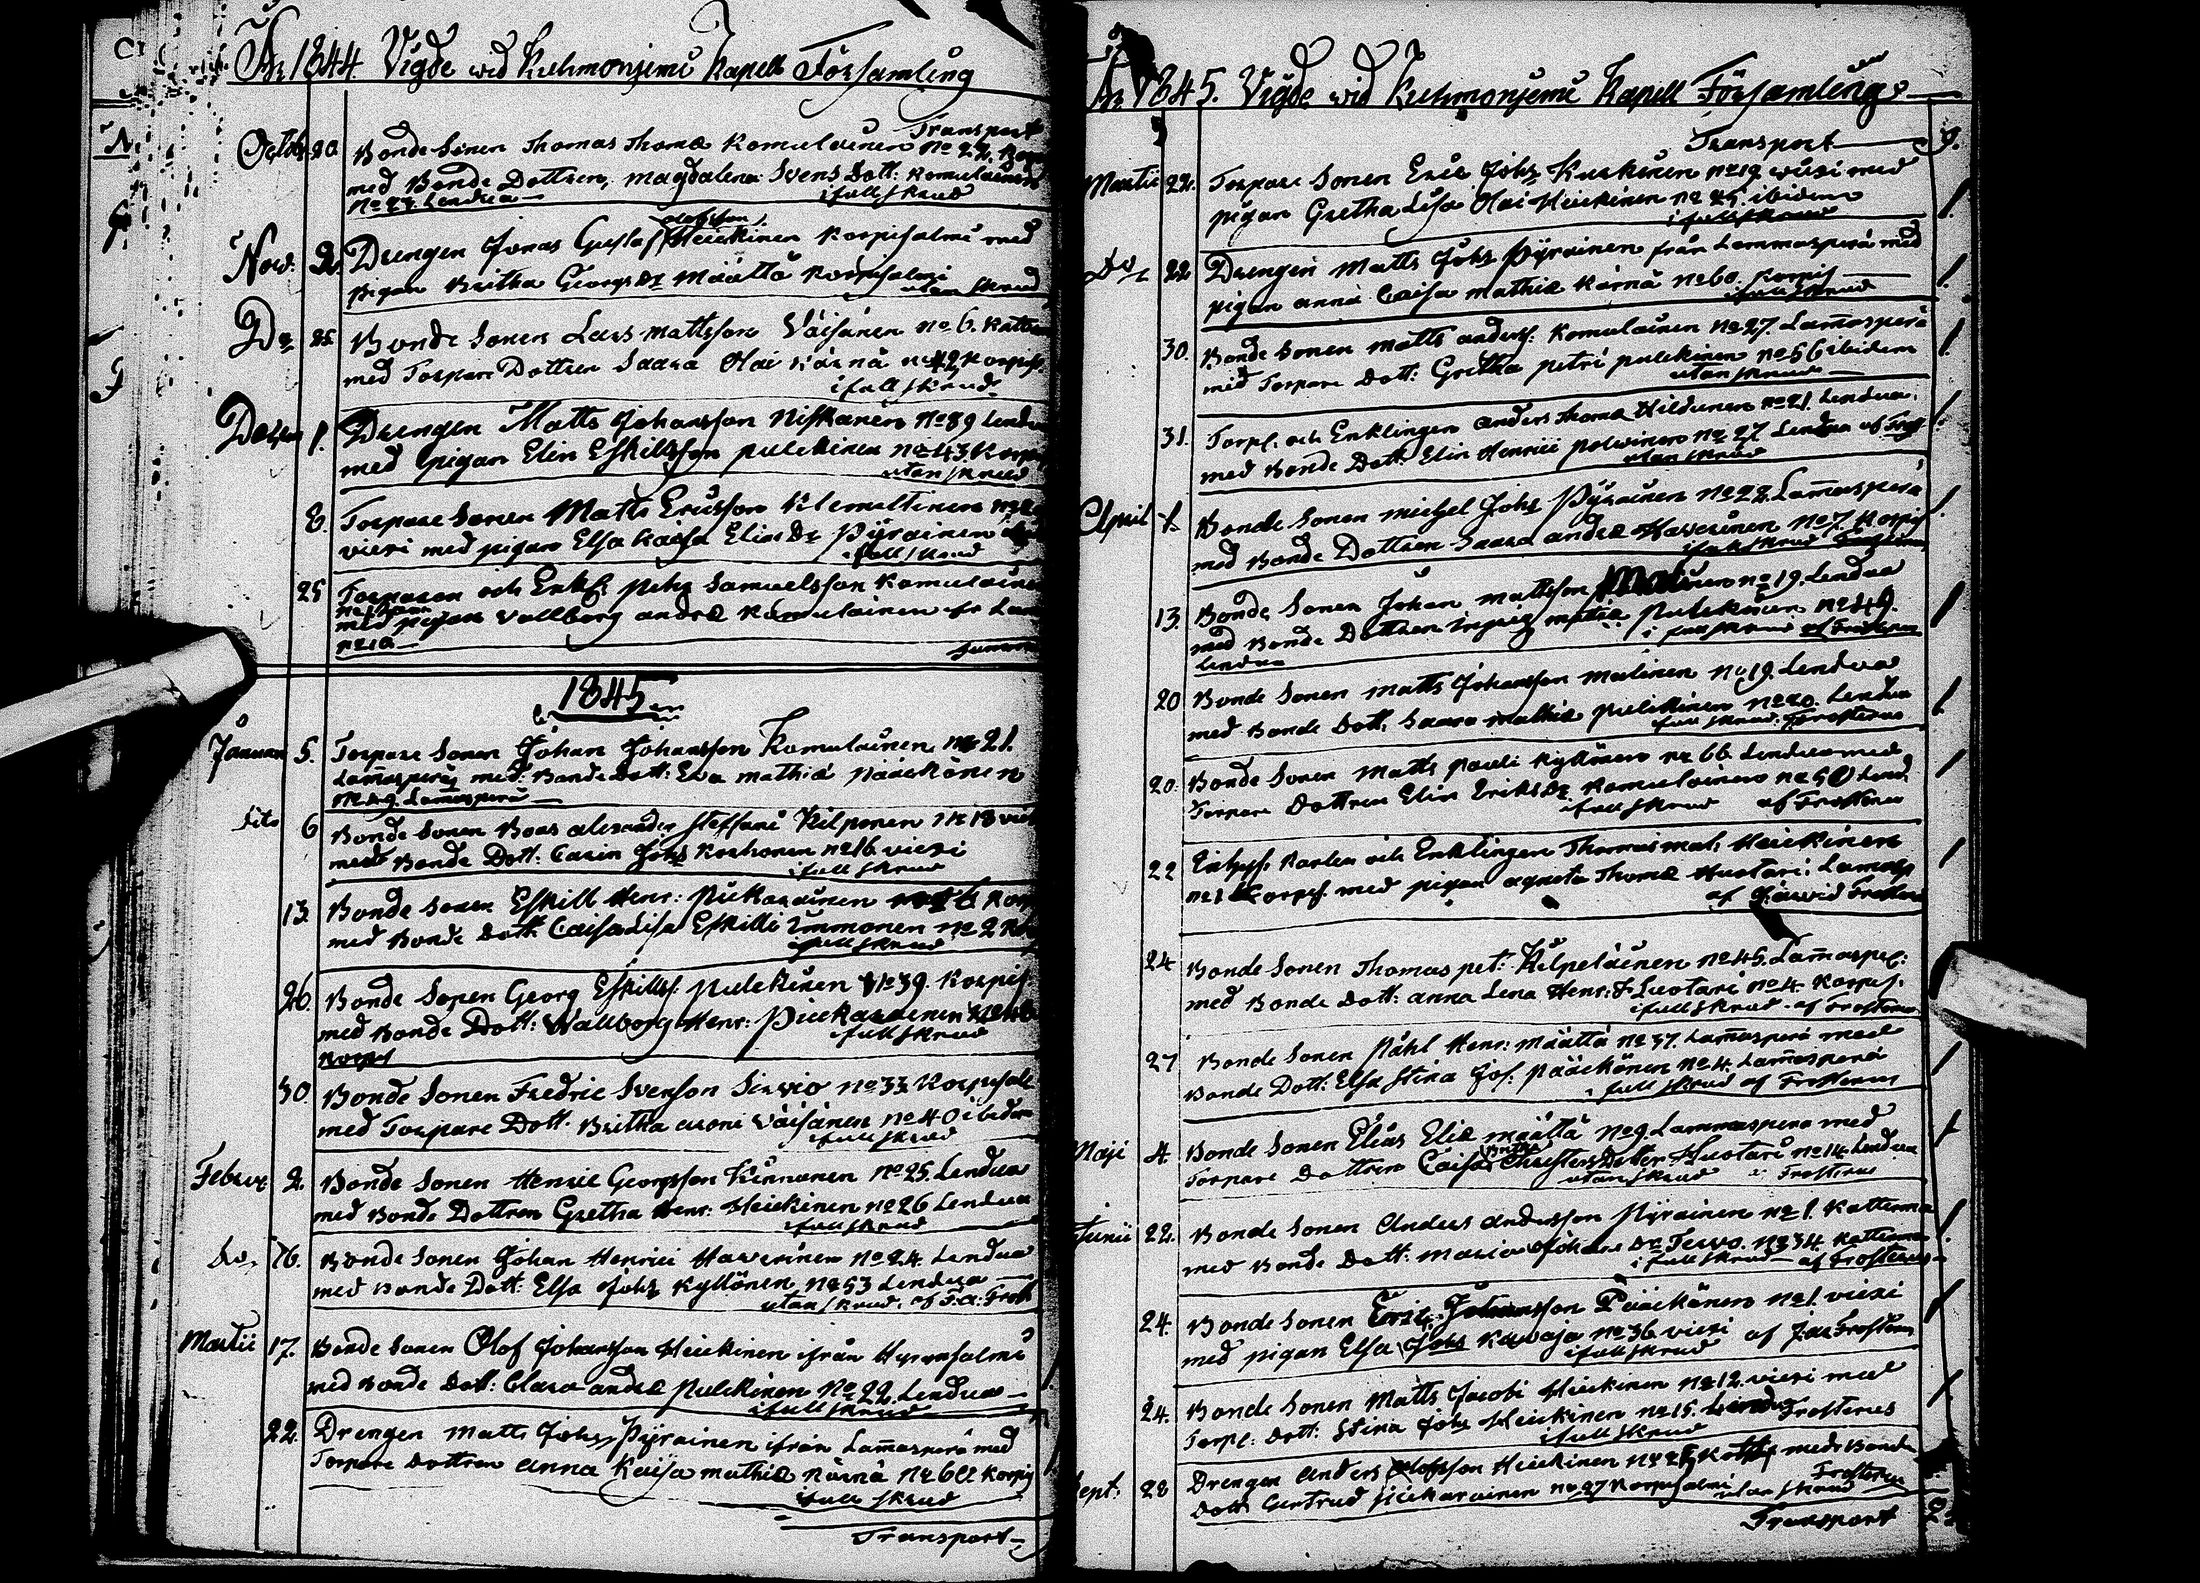 År 1844. Vigde wid Kuhmonjemi Kapell Församling
Transport
Octob. 20. Bonde Sonen Thomas Thomæ Komulainen No 27.
med Bonde Dottren, Magdalena Svens Dott: Komulainen
No 27. Lendua — i full skrud
Nov. 2. Drengen Jonas Gustaf Olofsson Heickinen Korpisalmi med
pigan Britha Georgs Dr Määttä Korpisalmi
utan skrud
Do 25. Bonde Sonen Lars Mattsson Väisänen No 6. Katter
med Torpare Dottren Saara Olai Kärnä No 42 Korpis
i full skrud
1. Drengen Matts Johansson Niskanen No 89 Lendu
med pigan Elin Eskillsson Pulckinen No 43 Korpi
utan skrud
8. Torpare Sonen Matts Ericsson Klemettinen
viexi med pigan Elsa Kaisa Elin Dr Pyrainen
i full skrud
25 Torparen och Enkl: Petr Samuelsson Komulaine
med pigan Vallborg andræ Komulainen fr Lam
No 10 —
Summa
1845
Januari 5. Torpare Sonen Johan Johansson Komulainen No 21.
Lamasperä med: Bonde Dott: Eva Mathiæ Pääckönen
No 49. Lamasperä —
dito 6 Bonde Sonen Boas Alexander Steffani Kilponen No 18 viex
med Bonde Dott: Carin Johs Korhonen No 16. viexi
i full skrud
13. Bonde Sonen Eskill Henr: Pickarainen Korp
med Bonde Dott: Caisa Lisa Eskilli Immonen No 2
i full skrud
26. Bonde Sonen Georg Eskills: Pulckinen No 39. Korpis:
med Bonde Dott: Wallborg Henr: Pickarainen
Korpis i full skrud
30. Bonde Sonen Fredric Svenson Sirvio No 33 Korpisal
med Torpare Dott. Britha aroni Väisänen No 40 ibidem
i full skrud
Februr 2. Bonde Sonen Henric Georgsson Kinnunen No 25. Lendua
med Bonde Dottren Gretha Henr: Heickinen No 26 Lendua
i full skrud
Do, 16. Bonde Sonen Johan Henrici Haverinen No 24. Lendua
med Bonde Dott: Elsa Johs Kyllönen No 53 Lendua —
utan skrud. af F.a. Frost
Martii 17. Bonde Sonen Olof Johansson Heickinen ifrån Hyrynsalmi
med Bonde Dott: Clara andræ Pulckinen No 22. Lendua —
i full skrud
22. Drengen Matts Johs Pyrainen ifrån Lamasperä med
Torpare Dottren Anna Kaisa Mathiæ Kärnä No 60 Korpis
i full skrud
Transport —
År 1845. Vigde wid Kuhmonjemi Kapell Församling
Transport — 9.
Martii 22. Torpare Sonen Eric Johs Kuskinen No 19. wiexi med
pigan Gretha Lisa Olai Heickinen No 25. ibidem 1.
i full skrud
Do 22 Drengen Matts Johs Pyrainen från Lammasperä med
pigan anna Caisa Mathiæ Kärnä No 60. Korpis — 1.
i full skrud
30. Bonde Sonen Matts anders: Komulainen No 27. Lamasperä 1.
med Torpare Dott: Gretha Petri Pulckinen No 56 ibidem
utan skrud —
31. Torp: och Enklingen anders Thomæ Hildunen No 21. Lendua. 1.
med Bonde Dott: Elin Henrici Polvinen No 27 Lendua af Frost
utan skrud
April 1. Bonde Sonen Michel Johs Pyrainen No 28. Lamasperä 1.
med Bonde Dottren Saara andræ Haverinen No 7. Korpis
i full skrud
13. Bonde Sonen Johan Mattsson Malinen No 19. Lendua 1
med Bonde Dottren Matiæ Pulckinen No 49.
Lendua i full skrud af Frosterus
20 Bonde Sonen Matts Johansson Malinen No 19. Lendua
med Bonde Dott: Saara Mathiæ Pulckinen No 20. Lendua 1.
i full skrud. Frosterus
20. Bonde Sonen Matts Pauli Kyllönen No 66. Lendua med 1
Torpare Dottren Elin Eriks Dr Komulainen Lend.
i full skrud af Frosterus
22 Karlen och Enklingen Thomas Mat: Heickinen 1
No 1 Korpis. med pigan agneta Thomæ Huotari: Lammasp
af Frosterus
24 Bonde Sonen Thomas Pet: Kilpeläinen No 45. Lamasper:
med Bonde Dott: anna Lena Henr: Dr Luotari No 4. Korpis.
i full skrud. af Frosterus
27 Bonde Sonen Påhl Henr: Määttä No 37. Lamasperä med 1
Bonde Dott: Elsa Stina Jos: Pääckönen No 4. Lamasperä
i full skrud af Frosterus
Maji 4. Bonde Sonen Elias Eliæ Määttä No 9. Lammasperä med 1
Torpare Dottren Caisa Britha Christers Dotter Huotari No 14. Lendua
utan skrud Frosterus
Junii 22. Bonde Sonen Anders andersson Pyrainen No 1. Katterma 1.
med Bonde Dott: Maria Johans Dr Tervo. No 34. Katterma
i full skrud — af Frosterus
24. Bonde Sonen Eric. Johansson Pääckönen No 1. viexi 1
med pigan Elsa Johs Kavaja No 36 viexi af Frosterus
i full skrud
24. Bonde Sonen Matts Jacobi Heickinen No 12. viexi med 1
Torp: Dott: Stina Johs Heickinen No 15. Frosterus
i full skrud
Sept: 28 Drengen Anders Olofsson Heickinen med Bonde
Dott: Gertrud Pickarainen No 27 Korpisalmi utan skrud Frosterus
Transport